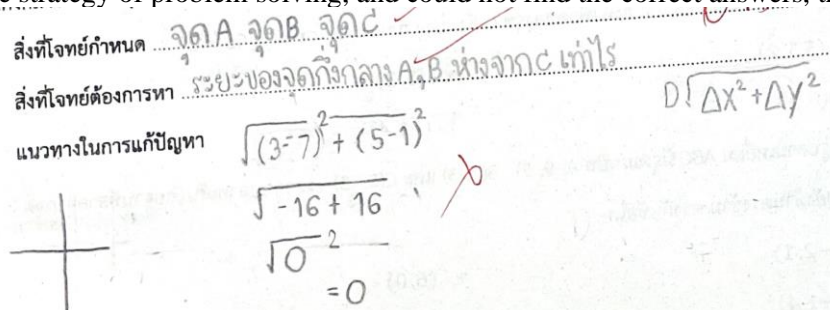 e strategy of problem solving, and could not find the correct answers, th
สิ่งที่โจทย์กำหนด จุดA จุดB จุดC
สิ่งที่โจทย์ต้องการหา ระยะของจุดกึ่งกลาง A,B ห่างจากC เท่าไร
D√ΔX²+ΔY²
แนวทางในการแก้ปัญหา √(3-7)²+(5-1)²
√-16+16
√0²
=0